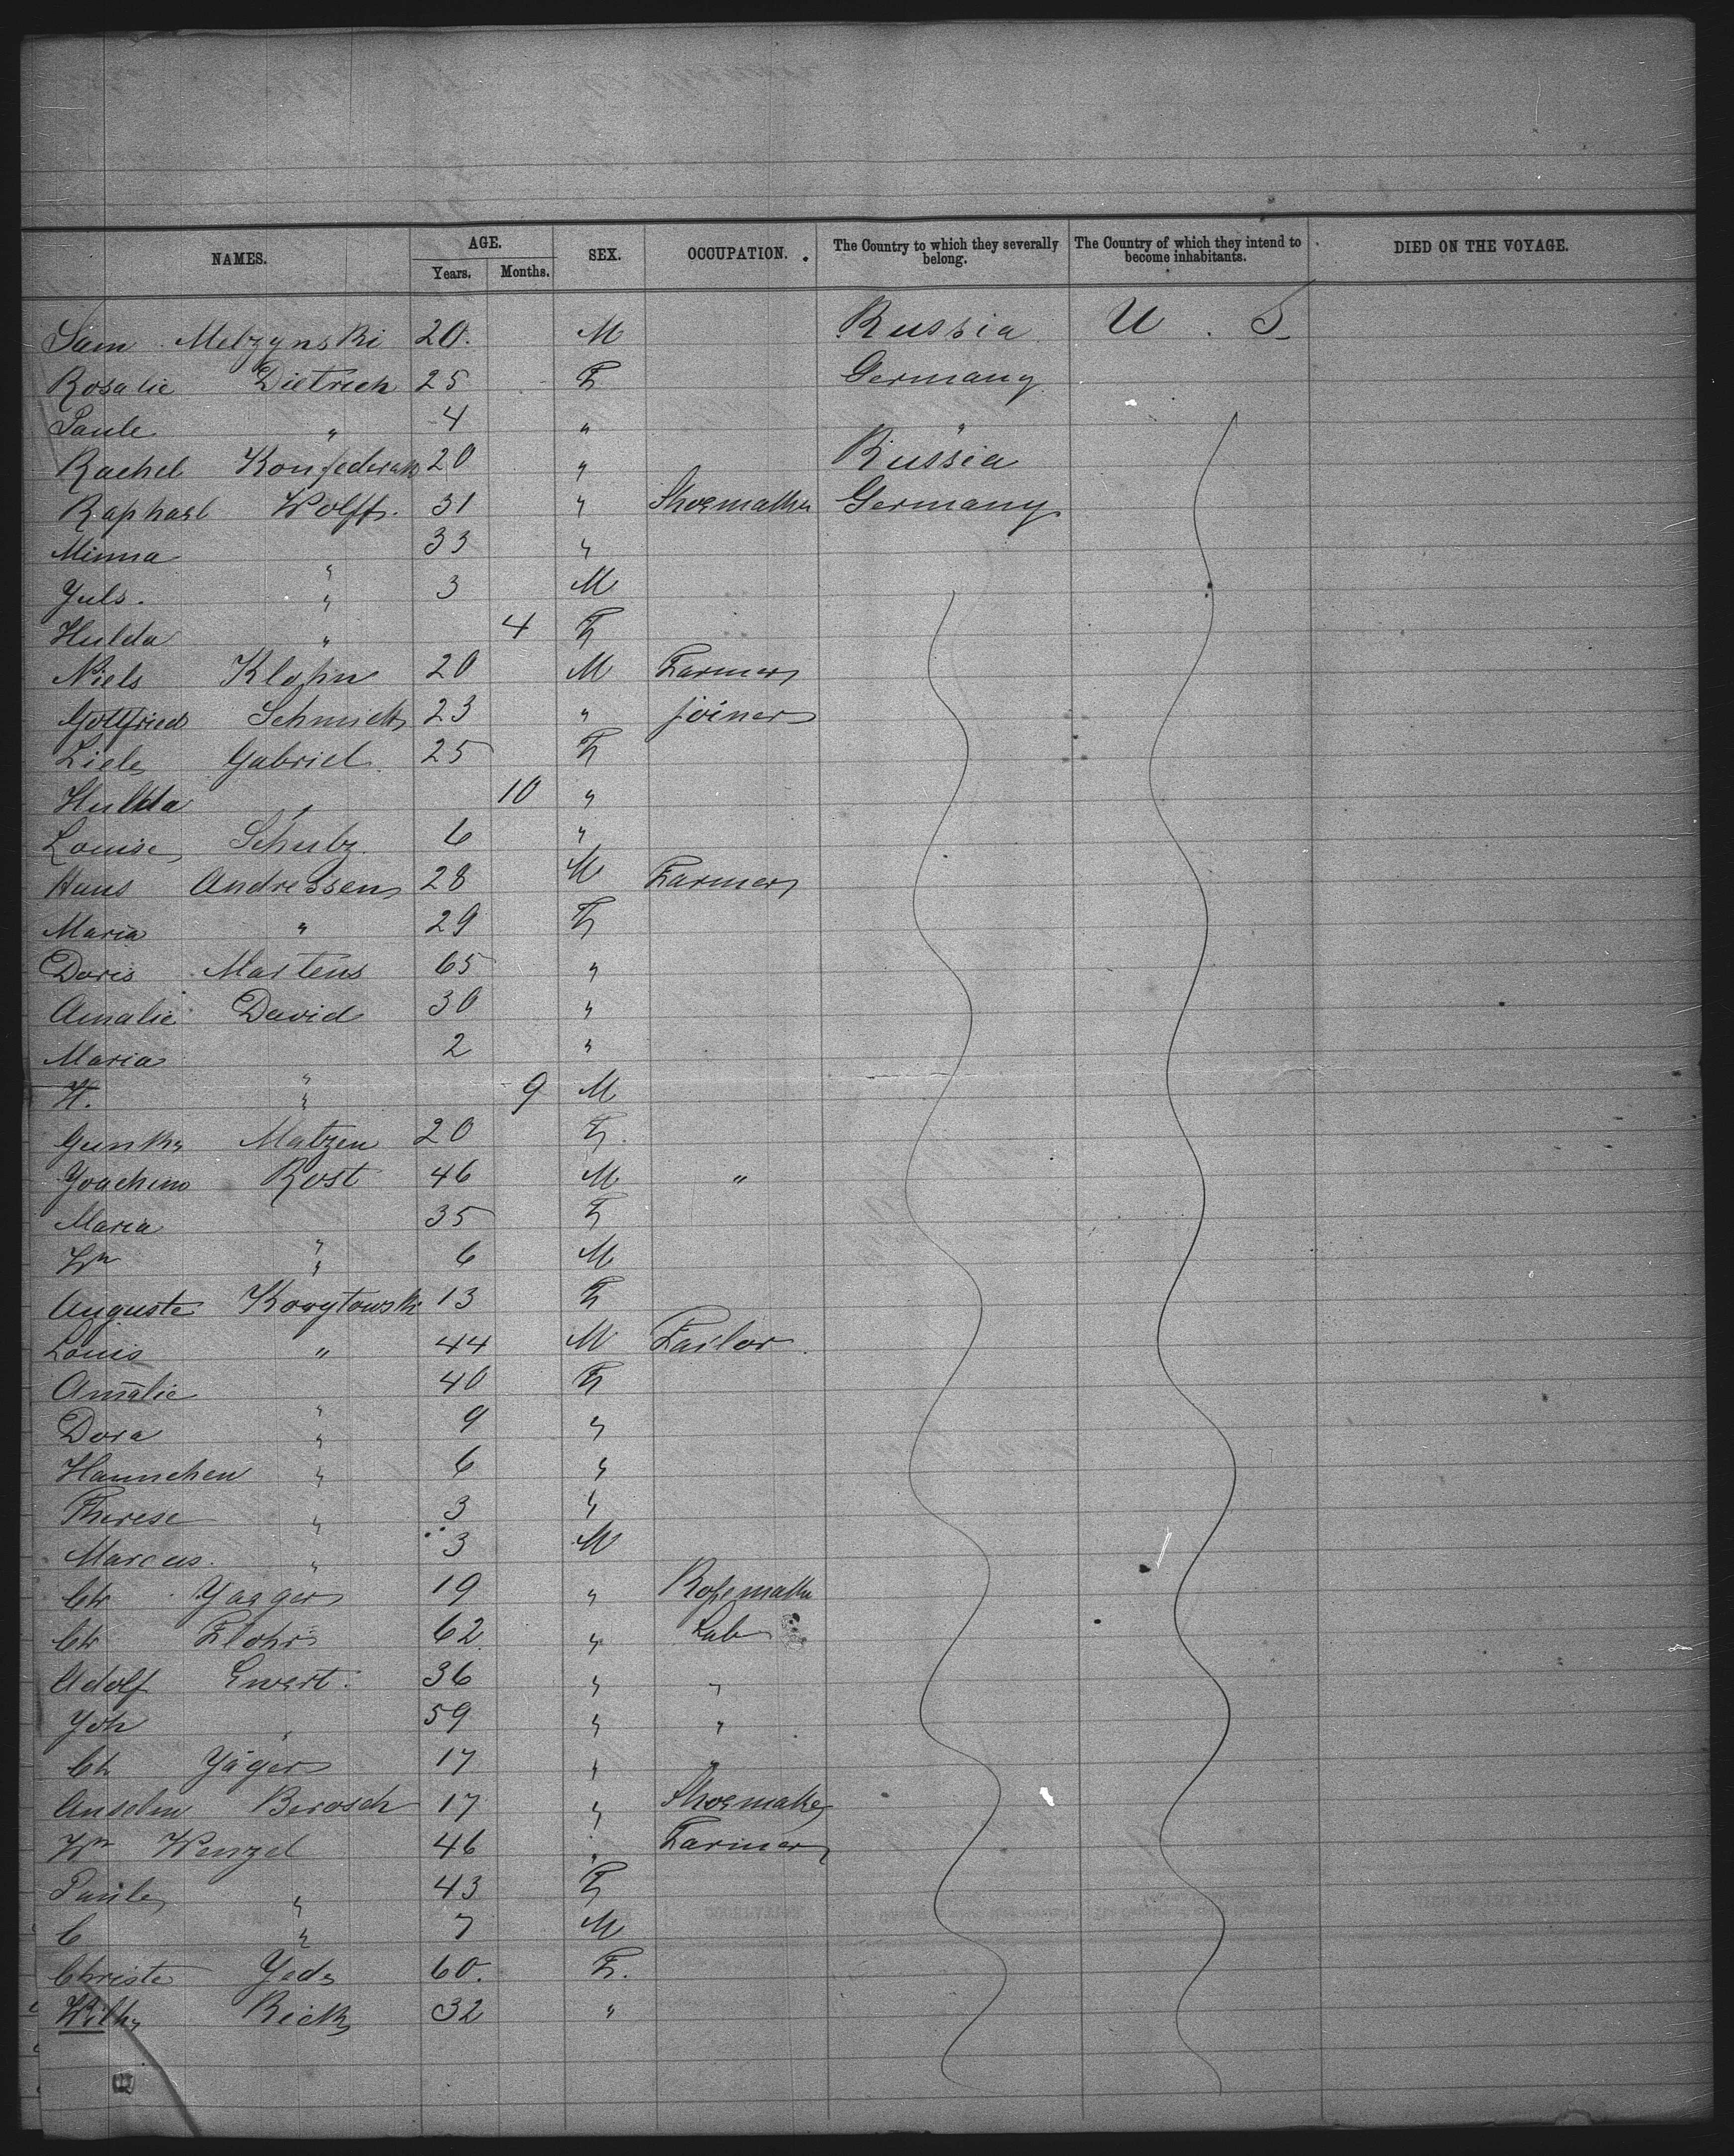 NAMES. AGE. Years. Months. SEX. OCCUPATION. The Country to which they severally belong. The Country of which they intend to become inhabitants. DIED ON THE VOYAGE.
Sam Metzynski 20. M Russia U. S
Rosalie Dietrich 25 F Germany
Paule " 4 " "
Rachel 20 " Russia
Raphael Wolff. 31 " Shoemaker Germany
Minna " 33 "
Juls. " 3 M
Hulda " 4 F
Niels Klohn 20 M Farmer
Gottfried Schmidt 23 " joiner
Liele Gabriel 25 F
Hulda " 10 "
Louise Schulz 6 "
Hans Andressen 28 M Farmer
Maria " 29 F
Doris Martens 65 "
Amalie David 30 "
Maria " 2 "
H. " 9 M
Matzen 20 F.
Joachim Rost 46 M "
Maria " 35 F
Wm " 6 M
Auguste 13 F
Louis " 44 M Tailor
Amalie " 40 F
Dora " 9 "
Hannchen " 6 "
Therese " 3 "
Marcus. " 3 M
Ch Jagger 19 " Ropemaker
Ch Flohr 62 " Lab
Adolf Ewert. 36 " "
Joh " 59 " "
Ch Jäger 17 " "
Anselm Berosch 17 " Shoemaker
Wm Wenzel 46 " Farmer
Paule " 43 F
C " 7 M
Christe 60. F.
Wilh Rick 32 "